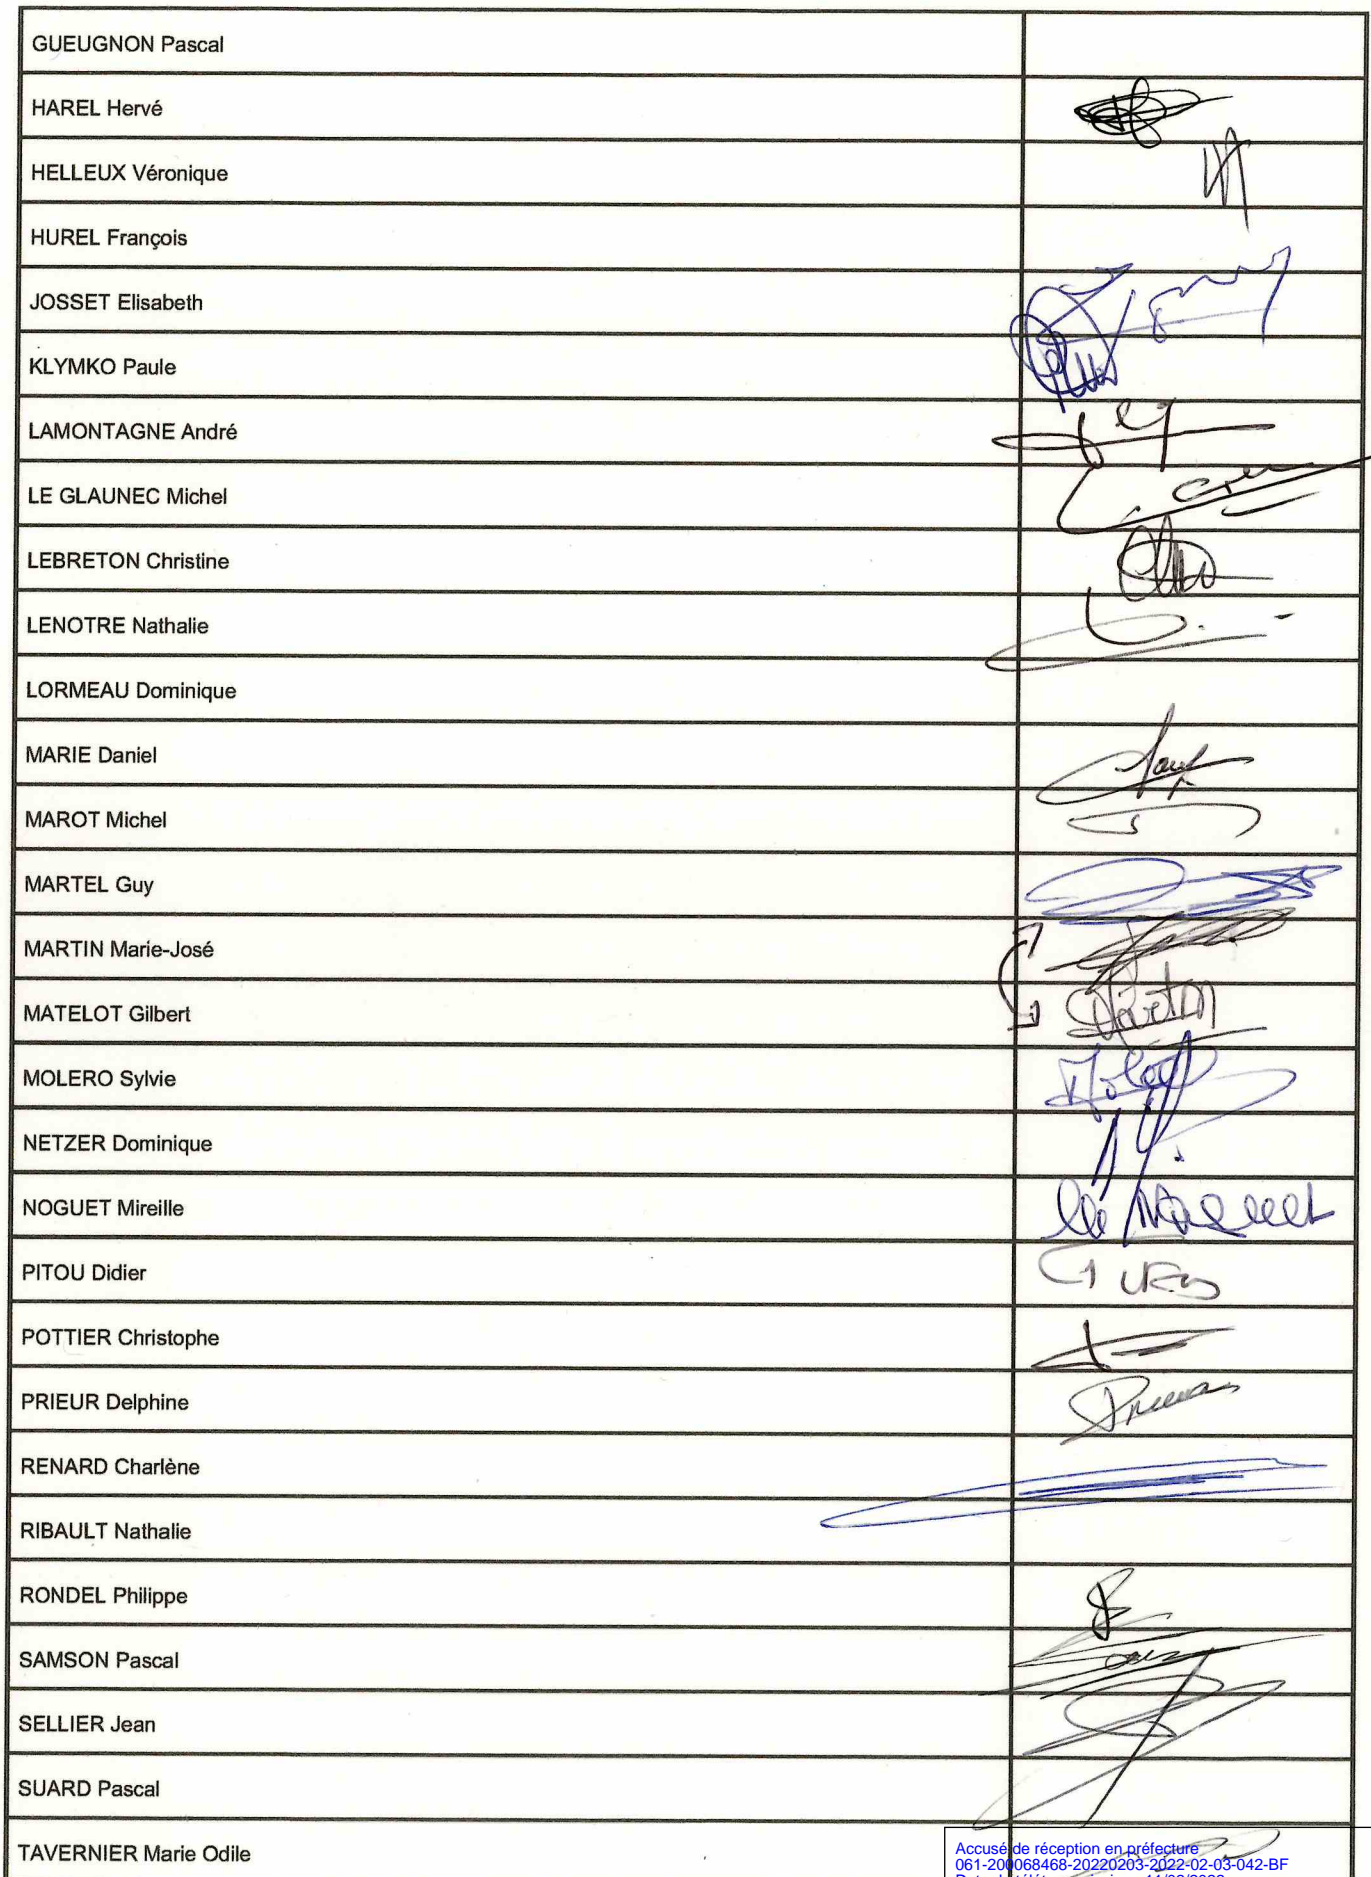 GUEUGNON Pascal
HAREL Hervé
HELLEUX Véronique
HUREL François
JOSSET Elisabeth
KLYMKO Paule
LAMONTAGNE André
LE GLAUNEC Michel
LEBRETON Christine
LENOTRE Nathalie
LORMEAU Dominique
MARIE Daniel
MAROT Michel
MARTEL Guy
MARTIN Marie-José
MATELOT Gilbert
MOLERO Sylvie
NETZER Dominique
NOGUET Mireille
PITOU Didier
POTTIER Christophe
PRIEUR Delphine
RENARD Charlène
RIBAULT Nathalie
RONDEL Philippe
SAMSON Pascal
SELLIER Jean
SUARD Pascal
TAVERNIER Marie Odile
Accusé de réception en préfecture
061-200068468-20220203-2022-02-03-042-BF